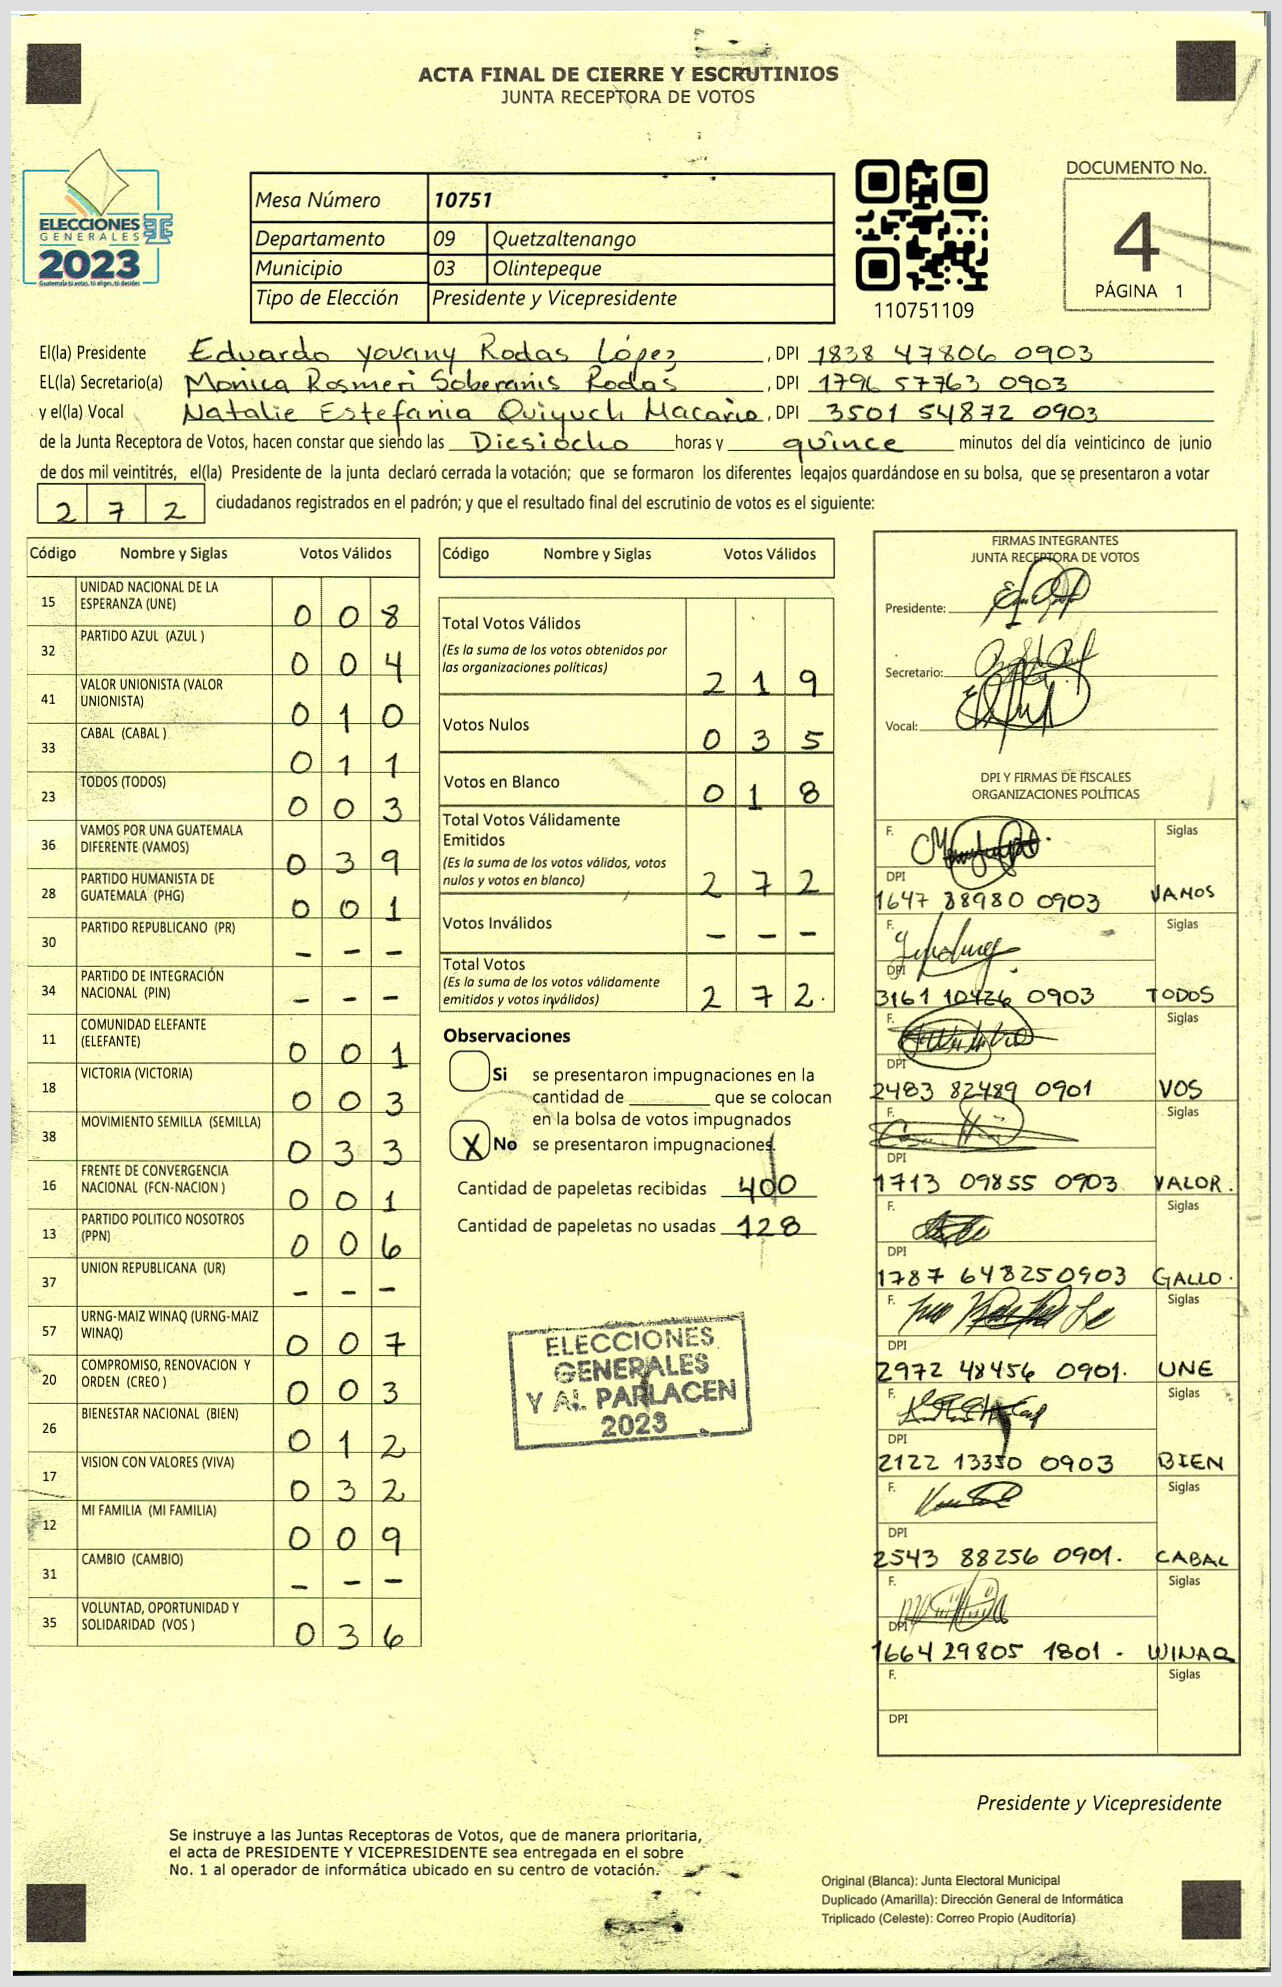 ACTA FINAL DE CIERRE Y ESCRUTINIOS
JUNTA RECEPTORA DE VOTOS
ELECCIONES
GENERALES
2023
Guatemala tú votas, tú eliges, tú decides
Mesa Número 10751
Departamento 09 Quetzaltenango
Municipio 03 Olintepeque
Tipo de Elección Presidente y Vicepresidente
110751109
DOCUMENTO No.
4
PÁGINA 1
El(la) Presidente Eduardo Yovany Rodas López, DPI 1838 47806 0903
EL(la) Secretario(a) Monica Rosmeri Soberanis Rodas, DPI 1796 57763 0903
y el(la) Vocal Natalie Estefania Quiyuch Macario, DPI 3501 54872 0903
de la Junta Receptora de Votos, hacen constar que siendo las Diesiocho horas y quince minutos del día veinticinco de junio
de dos mil veintitrés, el(la) Presidente de la junta declaró cerrada la votación; que se formaron los diferentes legajos guardándose en su bolsa, que se presentaron a votar
2 7 2 ciudadanos registrados en el padrón; y que el resultado final del escrutinio de votos es el siguiente:
Código Nombre y Siglas Votos Válidos
15 UNIDAD NACIONAL DE LA ESPERANZA (UNE) 0 0 8
32 PARTIDO AZUL (AZUL ) 0 0 4
41 VALOR UNIONISTA (VALOR UNIONISTA) 0 1 0
33 CABAL (CABAL ) 0 1 1
23 TODOS (TODOS) 0 0 3
36 VAMOS POR UNA GUATEMALA DIFERENTE (VAMOS) 0 3 9
28 PARTIDO HUMANISTA DE GUATEMALA (PHG) 0 0 1
30 PARTIDO REPUBLICANO (PR) - - -
34 PARTIDO DE INTEGRACIÓN NACIONAL (PIN) - - -
11 COMUNIDAD ELEFANTE (ELEFANTE) 0 0 1
18 VICTORIA (VICTORIA) 0 0 3
38 MOVIMIENTO SEMILLA (SEMILLA) 0 3 3
16 FRENTE DE CONVERGENCIA NACIONAL (FCN-NACION ) 0 0 1
13 PARTIDO POLITICO NOSOTROS (PPN) 0 0 6
37 UNION REPUBLICANA (UR) - - -
57 URNG-MAIZ WINAQ (URNG-MAIZ WINAQ) 0 0 7
20 COMPROMISO, RENOVACION Y ORDEN (CREO ) 0 0 3
26 BIENESTAR NACIONAL (BIEN) 0 1 2
17 VISION CON VALORES (VIVA) 0 3 2
12 MI FAMILIA (MI FAMILIA) 0 0 9
31 CAMBIO (CAMBIO) - - -
35 VOLUNTAD, OPORTUNIDAD Y SOLIDARIDAD (VOS ) 0 3 6
Código Nombre y Siglas Votos Válidos
Total Votos Válidos 2 1 9
(Es la suma de los votos obtenidos por
las organizaciones políticas)
Votos Nulos 0 3 5
Votos en Blanco 0 1 8
Total Votos Válidamente
Emitidos 2 7 2
(Es la suma de los votos válidos, votos
nulos y votos en blanco)
Votos Inválidos - - -
Total Votos 2 7 2.
(Es la suma de los votos válidamente
emitidos y votos inválidos)
Observaciones
Si se presentaron impugnaciones en la
cantidad de ________ que se colocan
en la bolsa de votos impugnados
X No se presentaron impugnaciones.
Cantidad de papeletas recibidas 400
Cantidad de papeletas no usadas 128
ELECCIONES
GENERALES
Y AL PARLACEN
2023
FIRMAS INTEGRANTES
JUNTA RECEPTORA DE VOTOS
Presidente:
Secretario:
Vocal:
DPI Y FIRMAS DE FISCALES
ORGANIZACIONES POLÍTICAS
F. Siglas
DPI
1647 88980 0903 VAMOS
F. Siglas
DPI
3161 10426 0903 TODOS
F. Siglas
DPI
2483 82489 0901 VOS
F. Siglas
DPI
1713 09855 0903 VALOR.
F. Siglas
DPI
1787 64825 0903 GALLO.
F. Siglas
DPI
2972 48456 0901. UNE
F. Siglas
DPI
2122 13350 0903 BIEN
F. Siglas
DPI
2543 88256 0901. CABAL
F. Siglas
DPI
1664 29805 1801 - WINAQ
F. Siglas
DPI
Presidente y Vicepresidente
Se instruye a las Juntas Receptoras de Votos, que de manera prioritaria,
el acta de PRESIDENTE Y VICEPRESIDENTE sea entregada en el sobre
No. 1 al operador de informática ubicado en su centro de votación.
Original (Blanca): Junta Electoral Municipal
Duplicado (Amarilla): Dirección General de Informática
Triplicado (Celeste): Correo Propio (Auditoría)